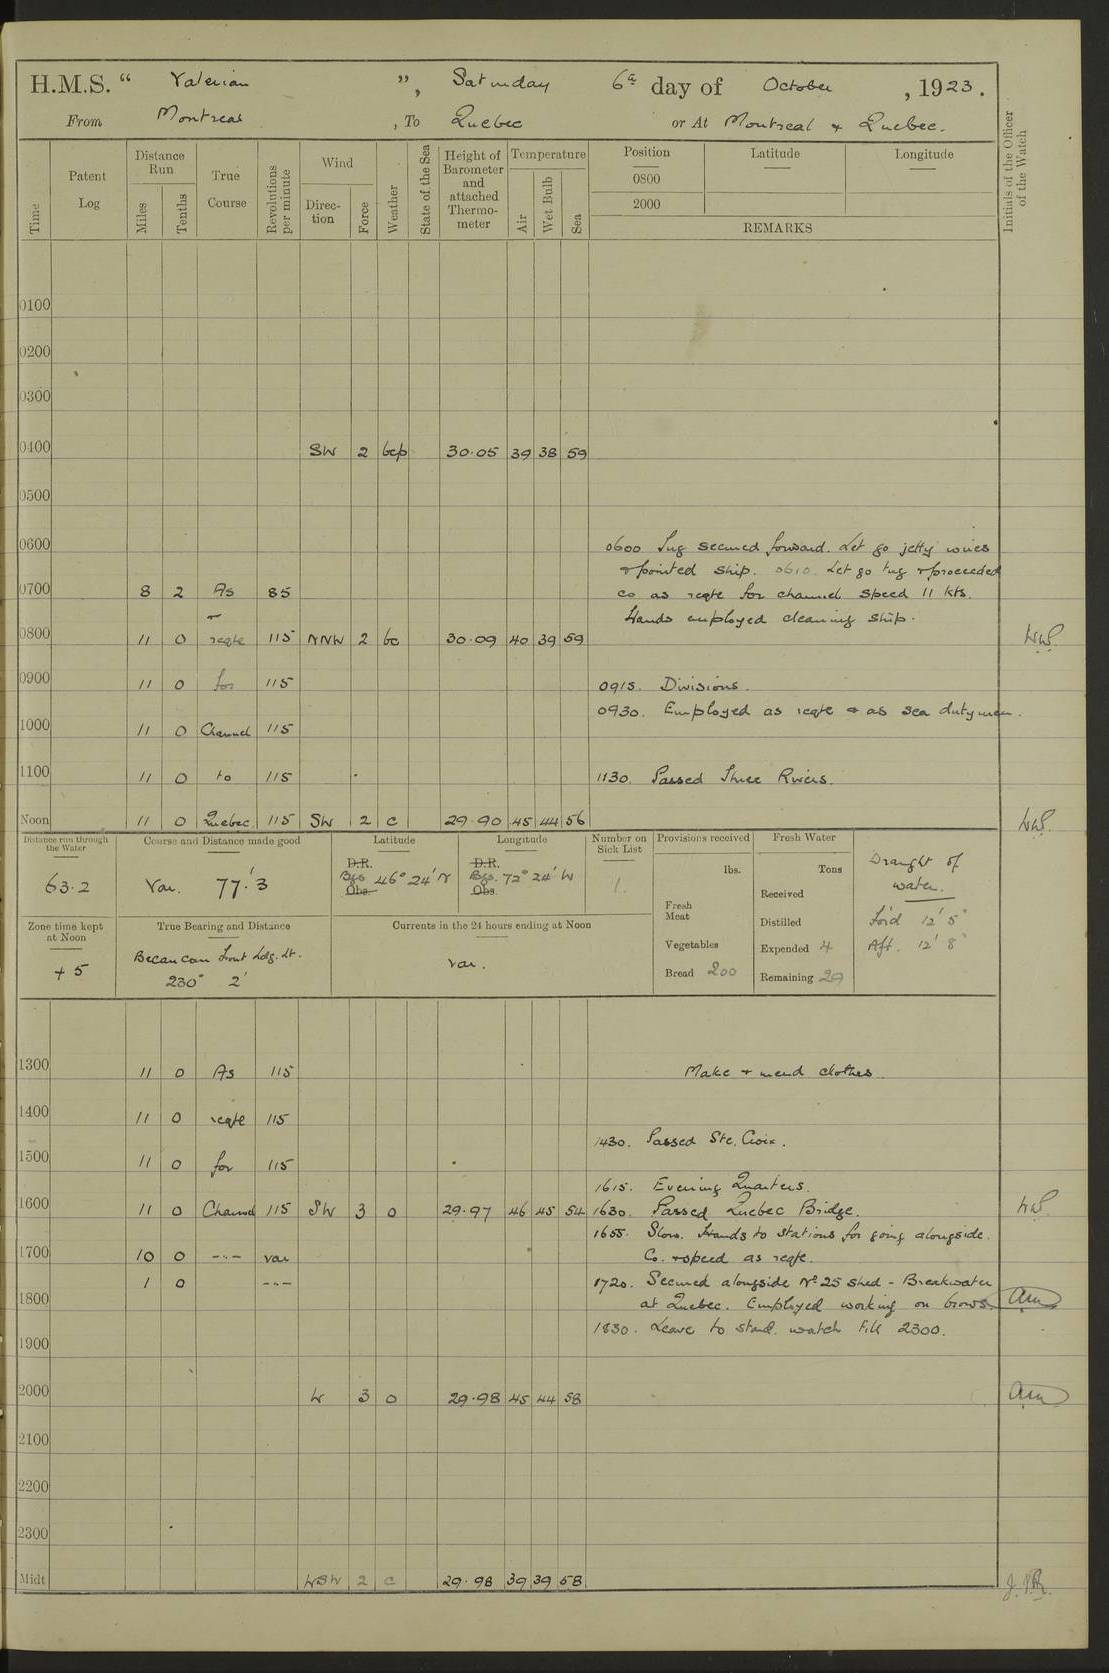 H.M.S. “ Valerian ”, Saturday 6th day of October, 1923.
From Montreal, To Quebec or At Montreal & Quebec.
Time
Patent Log
Distance Run
Miles
Tenths
True Course
Revolutions per minute
Wind
Direction
Force
Weather
State of the Sea
Height of Barometer and attached Thermometer
Temperature
Air
Wet Bulb
Sea
Position
0800
2000
Latitude
Longitude
REMARKS
Initials of the Officer of the Watch
0100
0200
0300
0400 SW 2 bcp 30·05 39 38 59
0500
0600 0600 Tug secured forward. Let go jetty wires
& pointed ship. 0610. Let go tug & proceeded
0700 8 2 As 85 Co as reqte for channel speed 11 kts.
Hands employed cleaning ship.
0800 11 0 reqte 115 NNW 2 bc 30·09 40 39 59
0900 11 0 for 115 0915. Divisions.
0930. Employed as reqte & as sea dutymen.
1000 11 0 Channel 115
1100 11 0 to 115 1130. Passed Three Rivers.
Noon 11 0 Quebec 115 SW 2 c 29·90 45 44 56
Distance run through the Water
63·2
Course and Distance made good
Var. 77'·3
Latitude
D.R.
Bgs 46° 24' N
Obs.
Longitude
D.R.
Bgs. 72° 24' W
Obs.
Number on Sick List
1.
Provisions received
lbs.
Fresh Meat
Vegetables
Bread 200
Fresh Water
Tons
Received
Distilled
Expended 4
Remaining 29
Draught of water.
For'd 12' 5"
Aft. 12' 8"
Zone time kept at Noon
+ 5
True Bearing and Distance
Becancour Front Ldg. Lt.
230° 2'
Currents in the 24 hours ending at Noon
Var.
1300 11 0 As 115 Make & mend clothes.
1400 11 0 reqte 115
1430. Passed Ste. Croix.
1500 11 0 for 115
1615. Evening Quarters.
1600 11 0 Channel 115 SW 3 0 29·97 46 45 54 1630. Passed Quebec Bridge.
1655. Slow. Hands to stations for going alongside.
1700 10 0 -"- var Co. & speed as reqte.
1 0 -"- 1720. Secured alongside No 25 Shed - Breakwater
1800 at Quebec. Employed working on brows.
1830. Leave to stand. watch till 2300.
1900
2000 W 3 0 29·98 45 44 58
2100
2200
2300
Midt WSW 2 c 29·98 39 39 58